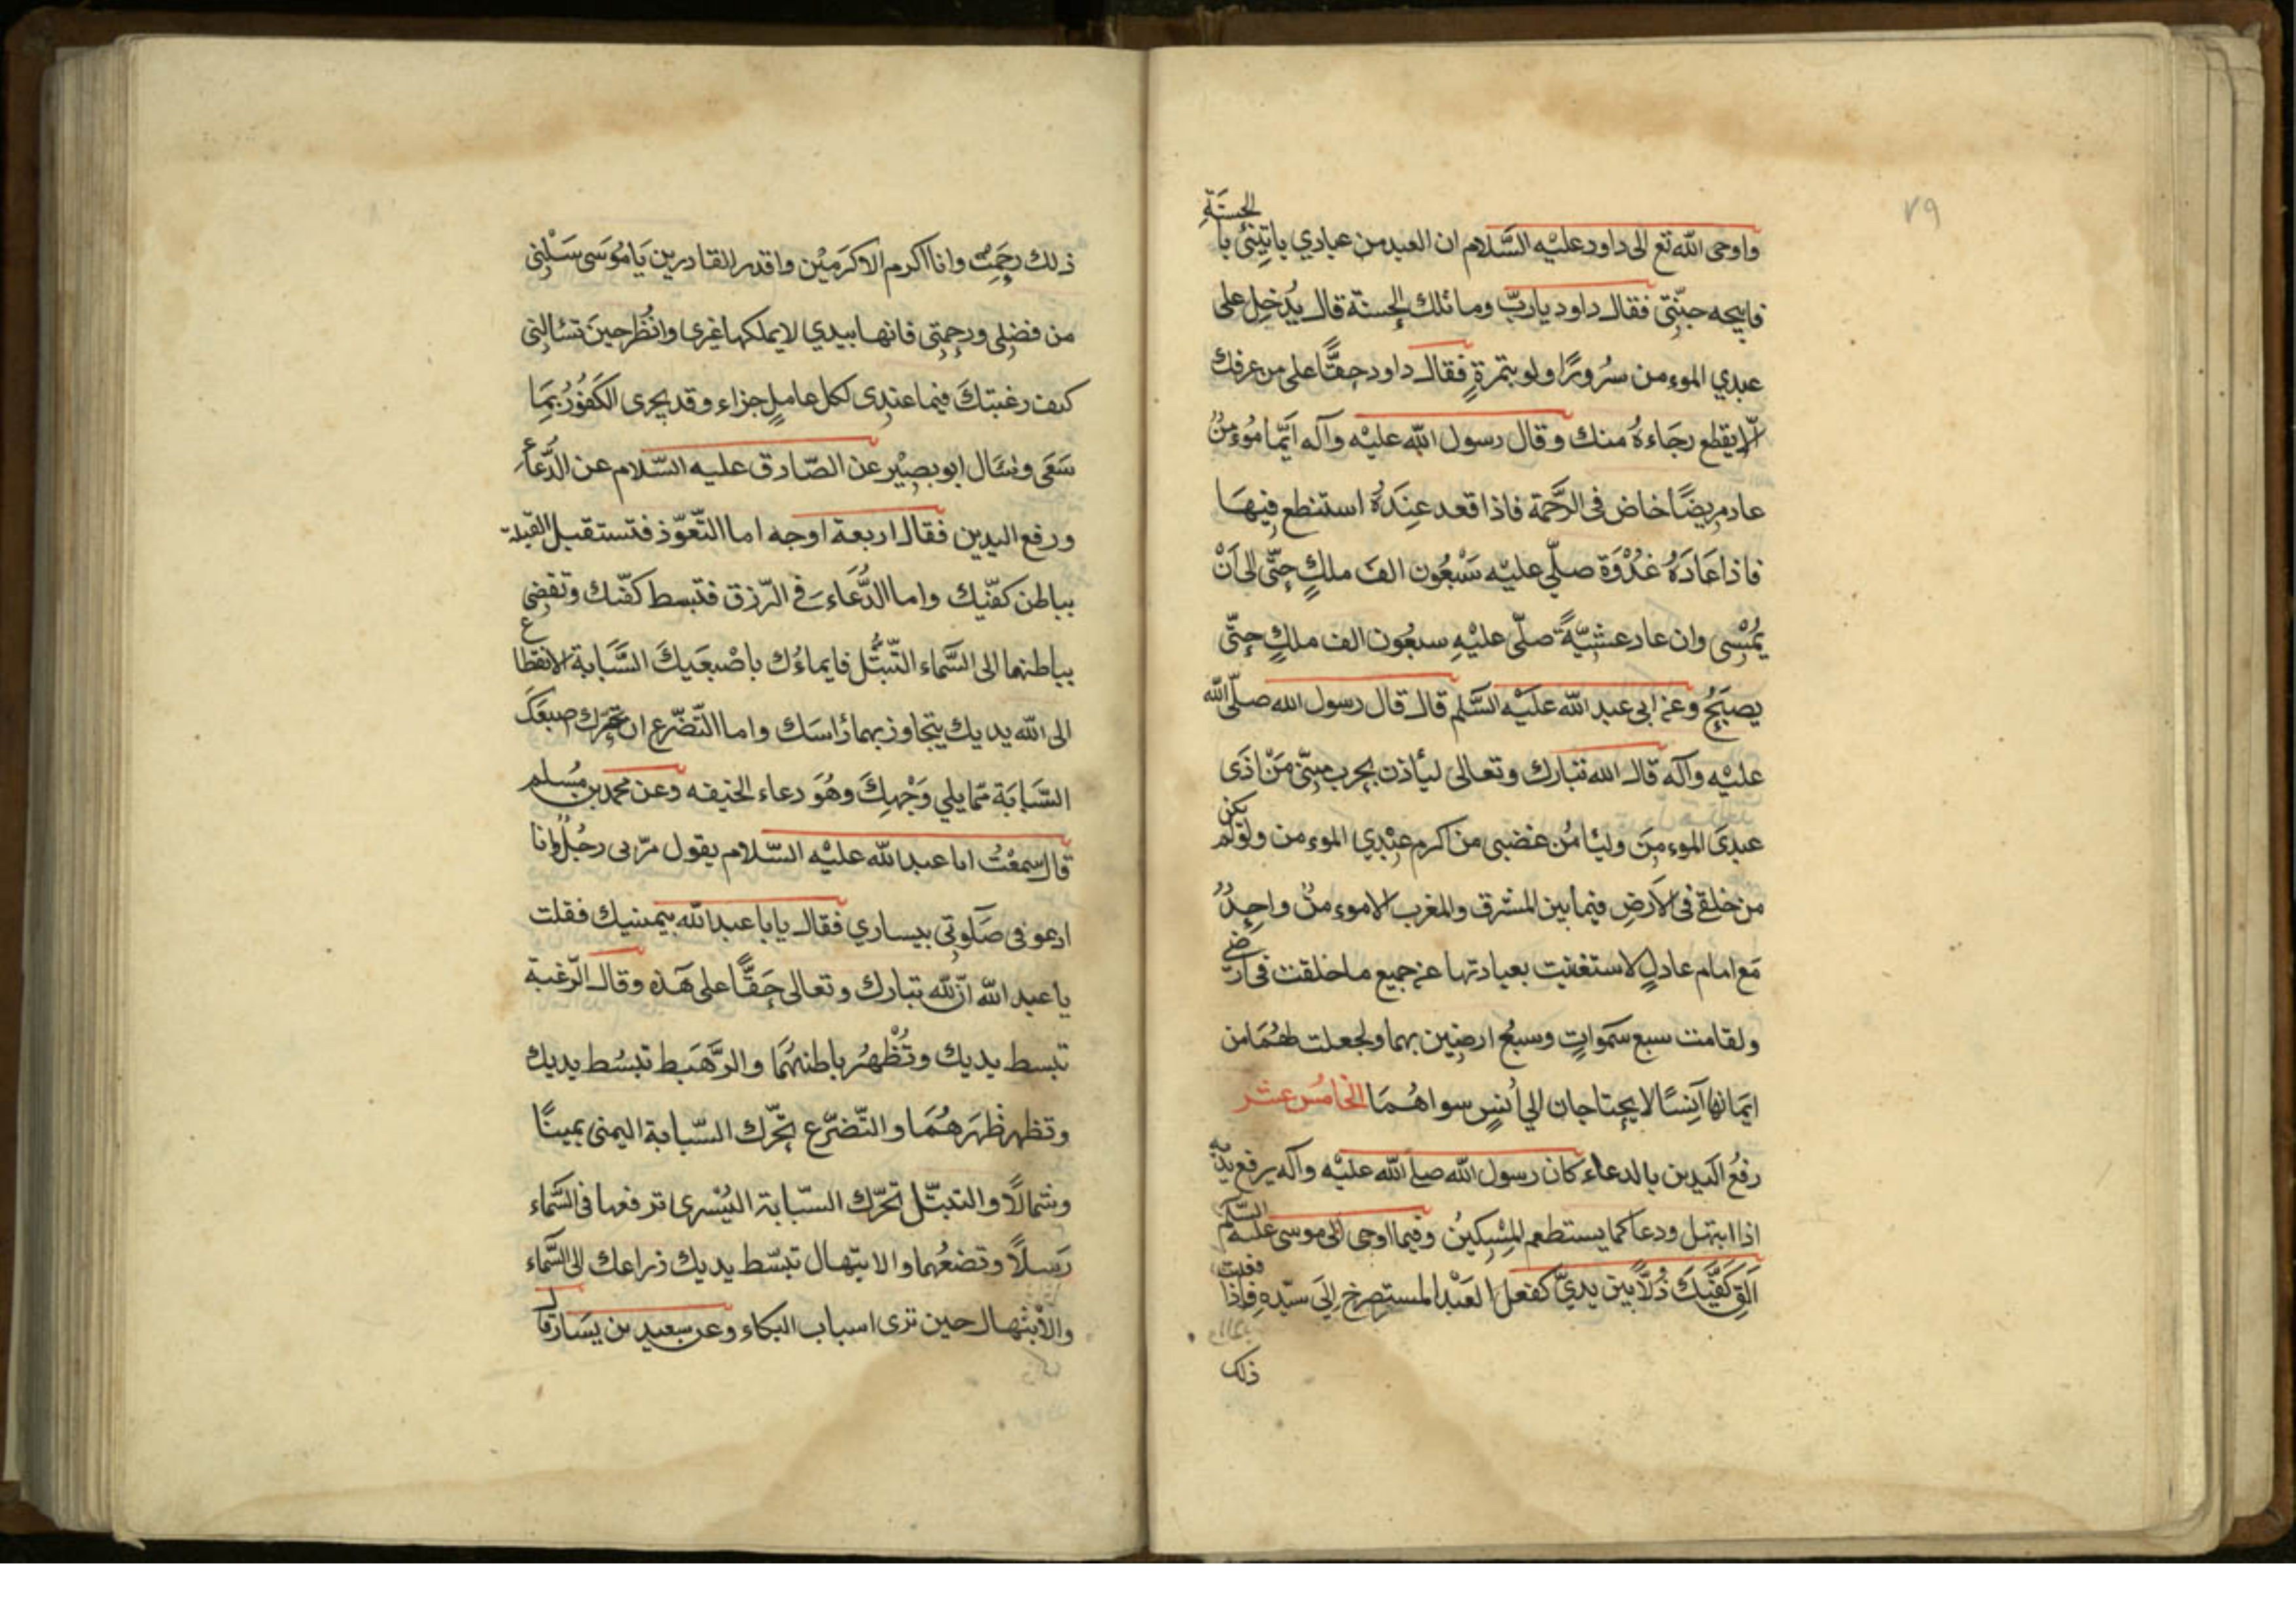 ٧٩
واوحى الله تع الى داود عليه السَّلام ان العبد من عبادي ياتيني با لحسنة
فابيحه جنّتى فقال داود ياربّ وما تلك الحسنة قال يُدخل على
عبدي الموءمن سُرورًا ولو بتمرةٍ فقال داود حقًّا على من عرفك
الّا يقطع رجاءهُ منك وقال رسول الله عليه وآله ايّما مُوءمنٌ
عاد مريضًا خاض فى الرَّحمة فاذا قعد عنِدَهُ استنطع فيها
فاذا عَادَهُ غدْوَة صلّي عليه سَبْعُون الفَ ملكٍ حتّى الى اَنْ
يُمْسِى وان عاد عشيَّةً صلّى عليْهِ سبعُون الف ملكٍ حتّى
يصبحُ وعن ابى عبد الله عليْه السَّلم قال قال رسول الله صلّى الله
عليْه وآله قال الله تبارك وتعالى ليأذن بحرب منّى مَنْ اذَى
عبدىَ الموءمِنَ وليأمُن غضبى من اكرم عبْدِي الموءمن ولولم يكن
من خلقے فى الاَرضِ فيما بين المشرق والمغرب الاموءمنٌ واحِدٌ
مَع امام عادلٍ لاستغنيت بعبادتها عن جميع ما خلقت فى ارضے
ولقامت سبع سمَوات وسبع ارضِين بهما ولجعلت لهُمَا من
ايمانها آنِسًا لا يحتاجان الي اُنسٍ سواهُمَا الخامُس عشر
رفعُ اليَدِين بالدعاء كان رسول الله صلے الله عليْه وآله يرفع يديه
اذا ابتهل ودعا كما يستطعم المِسْكينُ وفيما اوحى الى موسى عليه السَّلم
اَلِق كَفَّيكَ ذُلّاً بين يديّ كفعل العَبْد المستصرخ اِلىَ سيّدِهِ فاِذا فعلت
ذلك
ذلك رحِمَت وانا اكرم الاكرَميْن واقدر القادرين يَا مُوسَى سَلْنِى
من فضِلى ورحمتِى فانها بيدي لا يملكها غيرى وانُظر حينَ تسٔالنِى
كيف رغبتكَ فيما عندِى لكل عاملٍ جزاء وقد يجرى الكَفوُرُ بمَا
سَعَى وسٔال ابو بصِيْر عن الصّادق عليه السّلام عن الدُّعاء
ورفع اليدين فقال اربعة اوجه اما التّعوّذ فتستقبل القبلة
بباطن كفّيك واما الدُّعَاء فى الرّزق فتبسط كفّيك وتفضِى
بباطنهما الى السَّماء التّبتُّل فايماءُك باصْبعَيكَ السَّبَابة الانقطاع
الى الله يديك يتجاوز بهما رٔاسَك واما التّضّرع ان تحرّك اصبعَكَ
السّبابَة ممّا يلي وَجْهِكَ وهُوَ دعاء الخيفه وعن محمد بن مُسلم
قال سمعْتُ ابا عبد الله عليْه السّلام يقول مرّ بى رجُلٌ وانا
ادعو فى صَلوتِى بيساري فقال يا با عبد الله بيمينك فقلت
يا عبد الله اَنّ لله تبارك وتعالى حَقًّا على هَذه وقال الرّغبة
تبسط يديك وتُظْهرُ باطنهُمَا والرَّهبَط تبسُط يديك
وتظهر ظهرَهُمَا والتّضرّع تحرّك السّبابة اليمنى يمينًا
وشمالاً والتبتّل تحرّك السّبابة اليُسْرى ترفعها فى السَّماء
رَسلاً وتضعُهما والابتهال تبسّط يديك ذراعك الى السَّماء
والاْبتهال حين ترى اسباب البكاء وعن سعيد بن يسَار قال